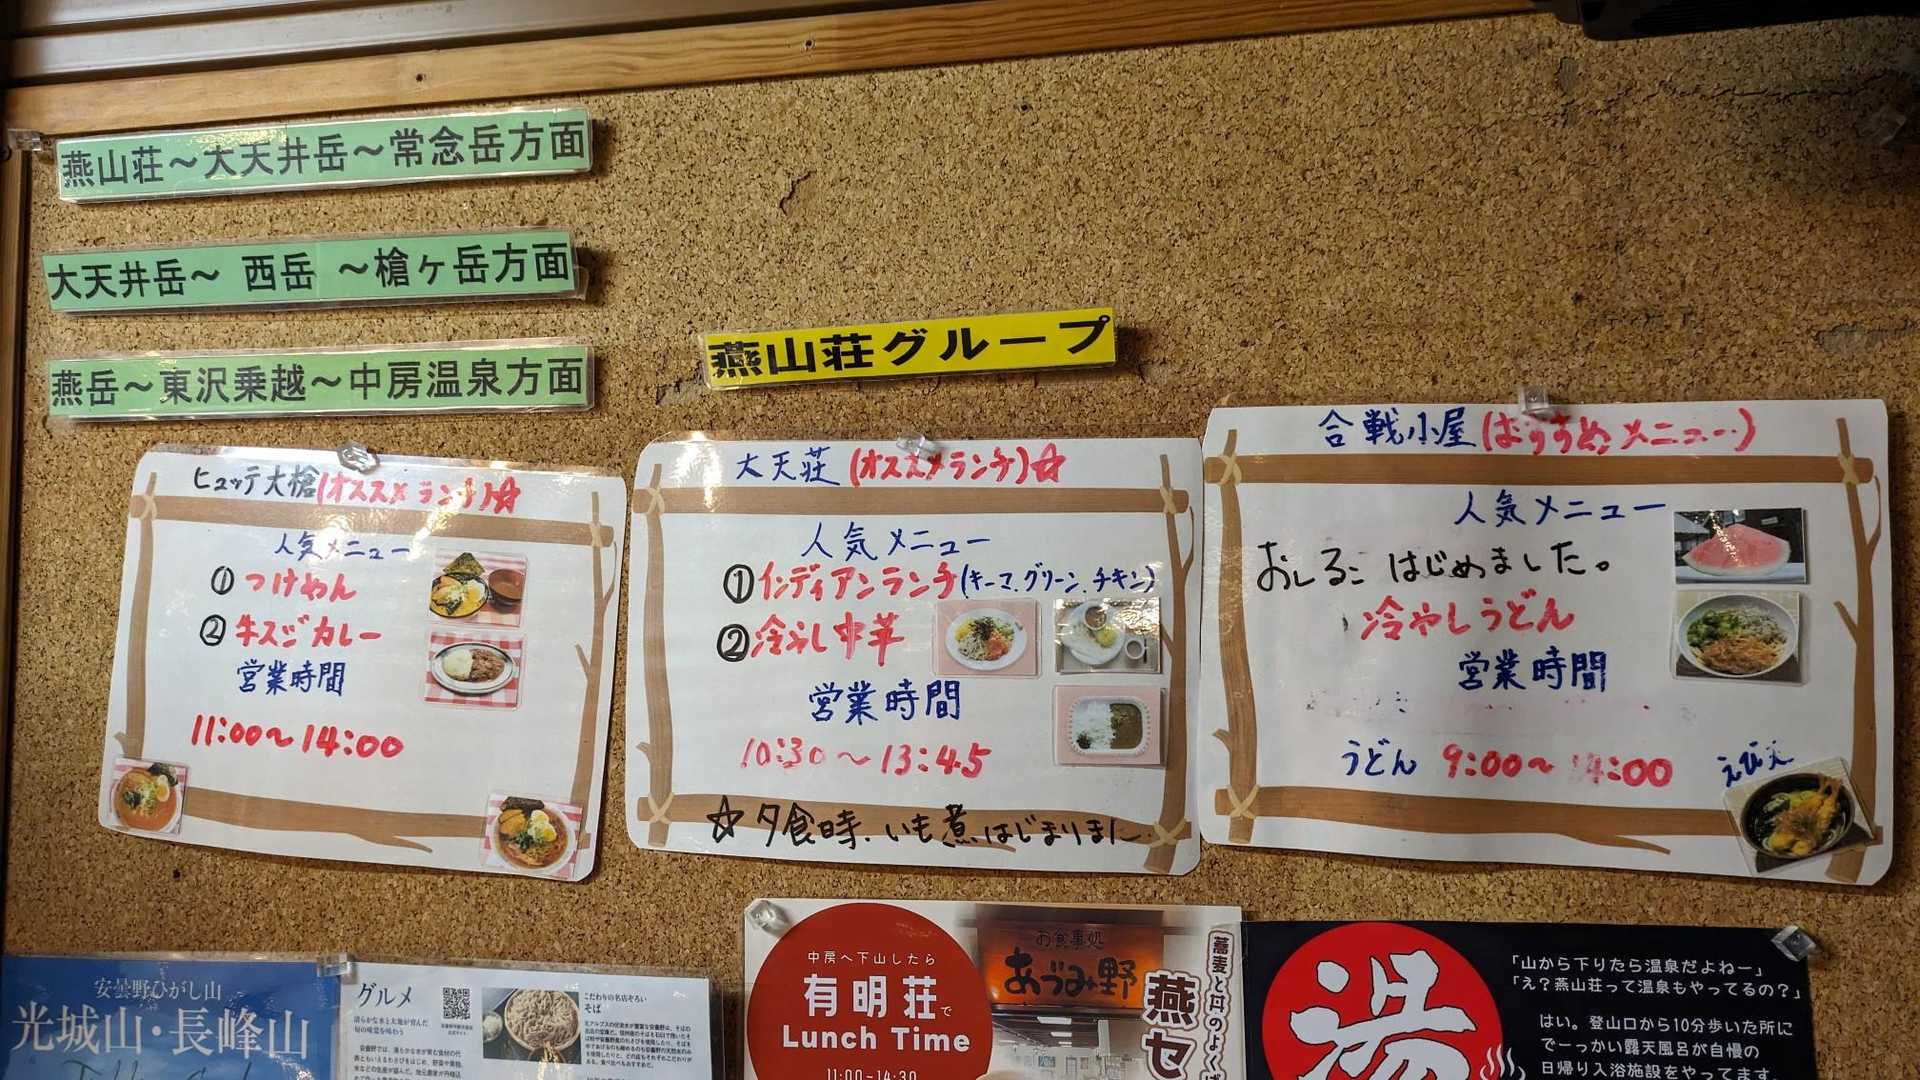 燕山荘～大天井岳～常念岳方面
大天井岳～ 西岳 ～槍ヶ岳方面
燕岳～東沢乗越～中房温泉方面
燕山荘グループ
ヒュッテ大槍(オススメランチ)☆
人気メニュー
① つけめん
② 牛スジカレー
営業時間
11:00～14:00
大天荘 (オススメランチ)☆
人気メニュー
①インディアンランチ(キーマ.グリーン.チキン)
②冷やし中華
営業時間
10:30～13:45
☆夕食時.いも煮はじまりました
合戦小屋(おすすめメニュー)
人気メニュー
おしるこ はじめました。
冷やしうどん
営業時間
うどん 9:00～14:00
えび天
安曇野ひがし山
光城山・長峰山
グルメ
清らかな水と大地が育んだ
旬の味覚を味わう
こだわりの名店ぞろい
そば
中房へ下山したら
有明荘で
Lunch Time
11:00-14:30
お食事処
あづみ野
蕎麦と口のよくば
燕セ
湯
「山から下りたら温泉だよねー」
「え？燕山荘って温泉もやってるの？」
はい。登山口から10分歩いた所に
でーっかい露天風呂が自慢の
日帰り入浴施設をやってます。